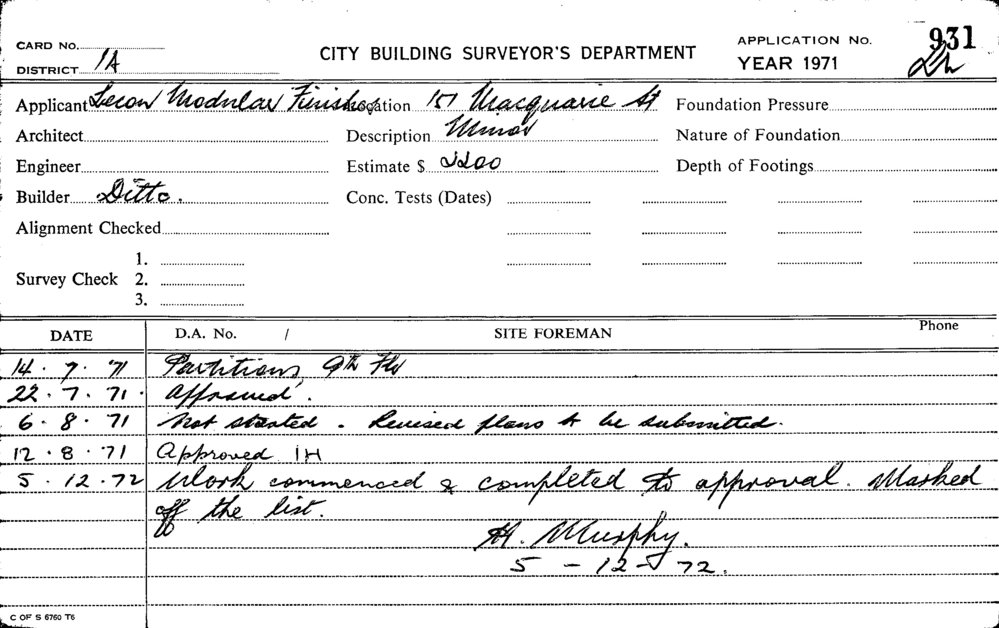 CARD No.
DISTRICT 1A
CITY BUILDING SURVEYOR'S DEPARTMENT
APPLICATION No. 931
YEAR 1971
Applicant Modular Finishes Location 151 Macquarie St Foundation Pressure
Architect Description Minor Nature of Foundation
Engineer Estimate $ 2200 Depth of Footings
Builder Ditto. Conc. Tests (Dates)
Alignment Checked
1.
Survey Check 2.
3.
DATE D.A. No. / SITE FOREMAN Phone
14 . 7 . 71 Partitions 9th Flr
22 . 7 . 71 . Approved .
6 . 8 . 71 Not started . Revised plans to be submitted .
12 . 8 . 71 Approved IH
5 . 12 . 72 Work commenced & completed to approval . Marked
off the list .
H. Murphy .
5 - 12 - 72 .
C OF S 6760 T6